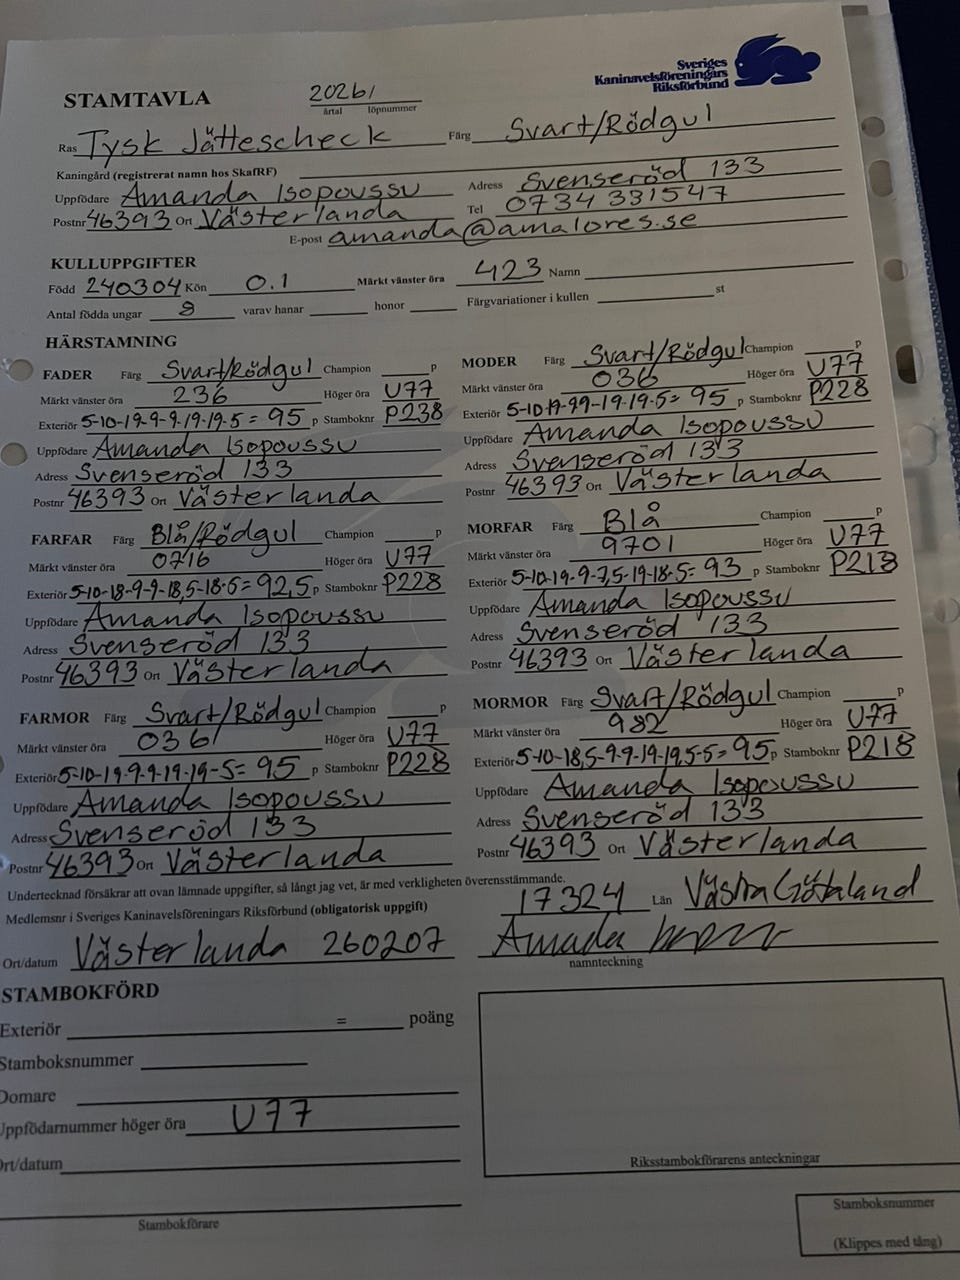 Sveriges
Kaninavelsföreningars
Riksförbund
STAMTAVLA 2026/
årtal löpnummer
Ras Tysk Jättescheck Färg Svart/Rödgul
Kaningård (registrerat namn hos SkafRF)
Uppfödare Amanda Isopoussu Adress Svenseröd 133
Postnr 46393 Ort Västerlanda Tel 0734 331547
E-post amanda@amalores.se
KULLUPPGIFTER
Född 240304 Kön 0.1 Märkt vänster öra 423 Namn
Antal födda ungar 8 varav hanar honor Färgvariationer i kullen st
HÄRSTAMNING
FADER Färg Svart/Rödgul Champion p
Märkt vänster öra 236 Höger öra U77
Exteriör 5-10-19-9-9-19-19-5= 95 p Stamboknr P238
Uppfödare Amanda Isopoussu
Adress Svenseröd 133
Postnr 46393 Ort Västerlanda
MODER Färg Svart/Rödgul Champion p
Märkt vänster öra 036 Höger öra U77
Exteriör 5-10-19-99-19-19-5= 95 p Stamboknr P228
Uppfödare Amanda Isopoussu
Adress Svenseröd 133
Postnr 46393 Ort Västerlanda
FARFAR Färg Blå/Rödgul Champion p
Märkt vänster öra 0716 Höger öra U77
Exteriör 5-10-18-9-9-18,5-18-5= 92,5 p Stamboknr P228
Uppfödare Amanda Isopoussu
Adress Svenseröd 133
Postnr 46393 Ort Västerlanda
MORFAR Färg Blå Champion p
Märkt vänster öra 9701 Höger öra U77
Exteriör 5-10-19-9-7,5-19-18-5= 93 p Stamboknr P213
Uppfödare Amanda Isopoussu
Adress Svenseröd 133
Postnr 46393 Ort Västerlanda
FARMOR Färg Svart/Rödgul Champion p
Märkt vänster öra 036 Höger öra U77
Exteriör 5-10-19-9-9-19-19-5= 95 p Stamboknr P228
Uppfödare Amanda Isopoussu
Adress Svenseröd 133
Postnr 46393 Ort Västerlanda
MORMOR Färg Svart/Rödgul Champion p
Märkt vänster öra 982 Höger öra U77
Exteriör 5-10-18,5-9-9-19-19,5-5= 95 p Stamboknr P218
Uppfödare Amanda Isopoussu
Adress Svenseröd 133
Postnr 46393 Ort Västerlanda
Undertecknad försäkrar att ovan lämnade uppgifter, så långt jag vet, är med verkligheten överensstämmande.
Medlemsnr i Sveriges Kaninavelsföreningars Riksförbund (obligatorisk uppgift) 17324 Län Västra Götaland
Ort/datum Västerlanda 260207
namnteckning
STAMBOKFÖRD
Exteriör = poäng
Stamboksnummer
Domare
Uppfödarnummer höger öra U77
Ort/datum
Stambokförare
Riksstambokförarens anteckningar
Stamboksnummer
(Klippes med tång)